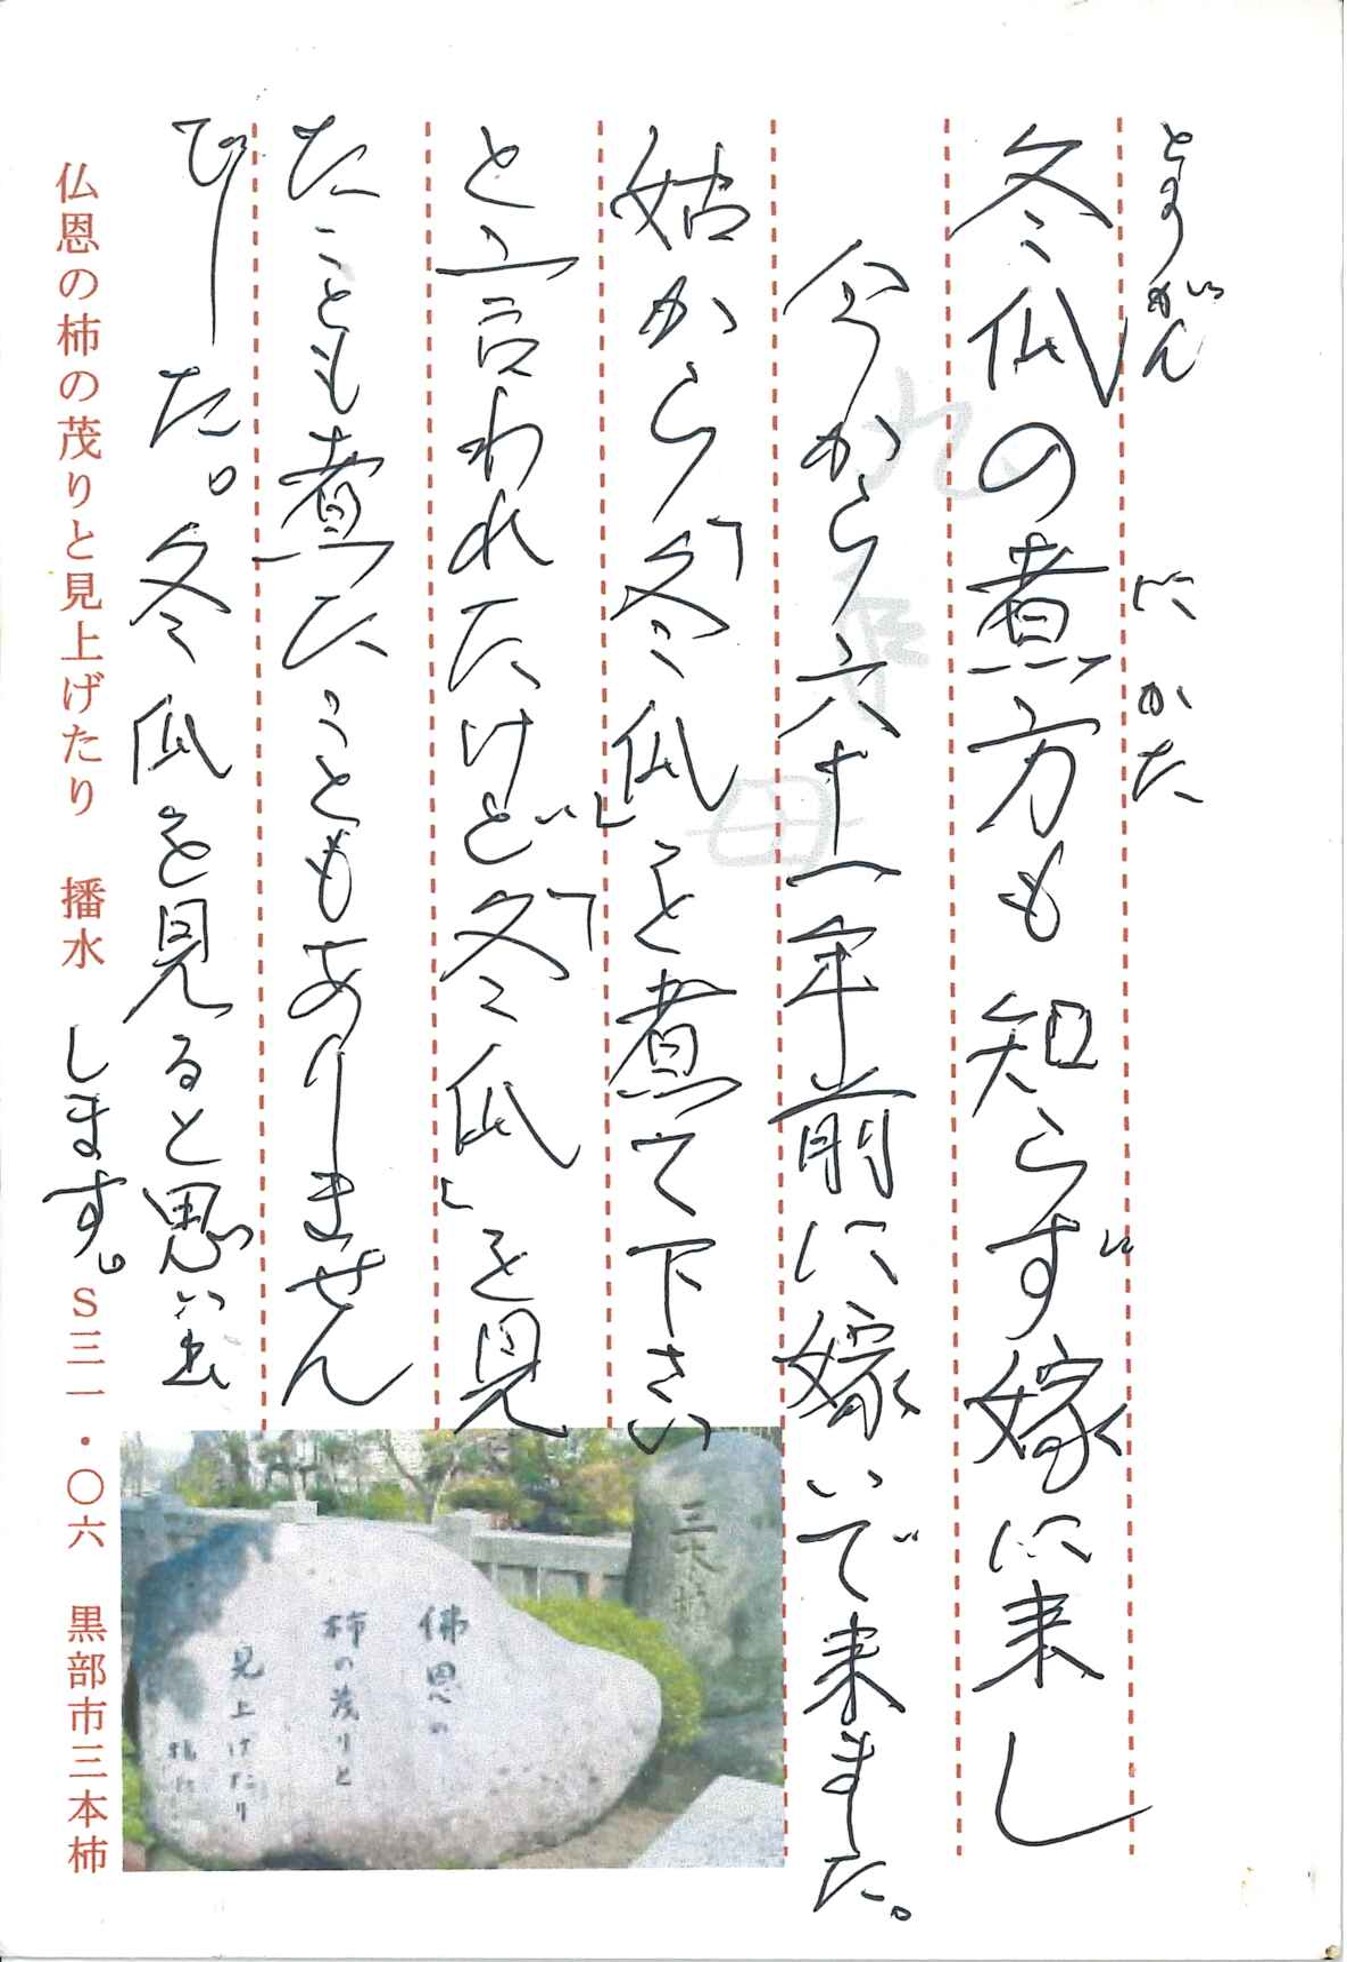 とうがん にかた
冬瓜の煮方も知らず嫁に来し
今から六十一年前に嫁いで来ました。
姑から「冬瓜」を煮て下さい
と言われたけど「冬瓜」を見
たことも煮たこともありません
でした。冬瓜を見ると思い出
します。
仏恩の柿の茂りと見上げたり 播水 S三一・〇六 黒部市三本柿
佛恩の
柿の茂りと
見上げたり
播水
三本柿